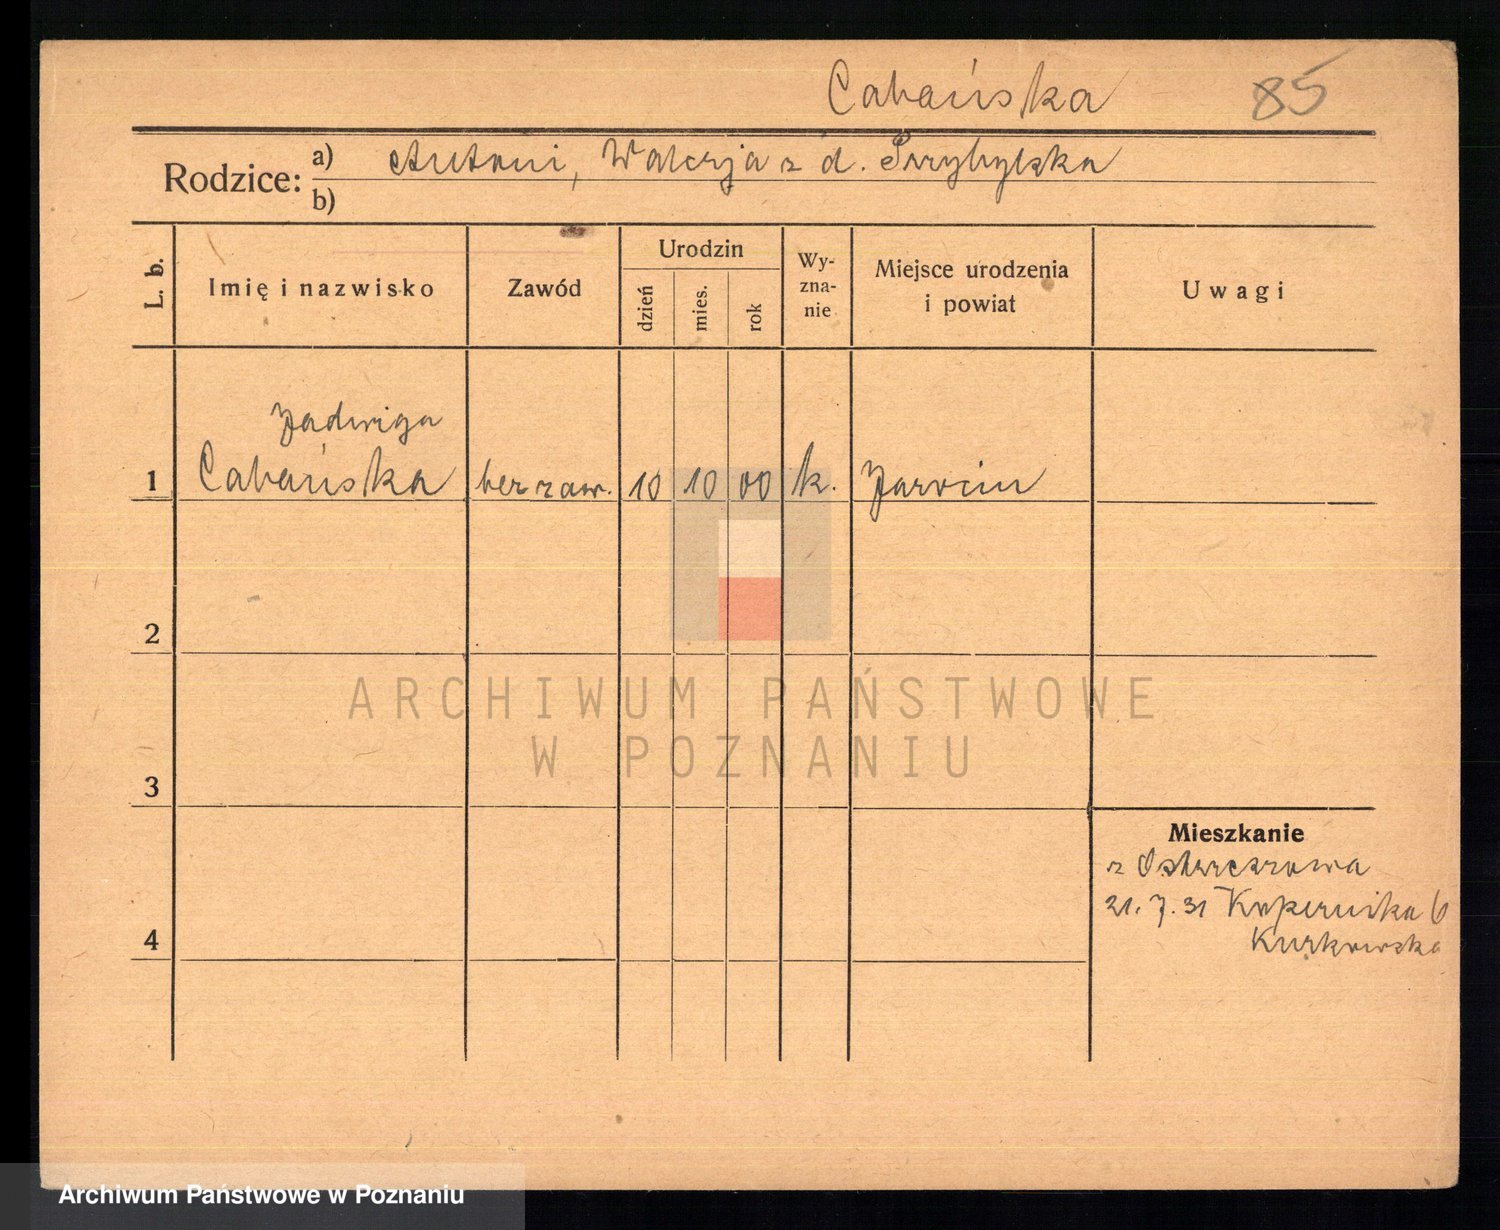 Cabańska 85
Rodzice: a) Antoni, Walerja z d. Przybylska
b)
L. b.
Imię i nazwisko
Zawód
Urodzin
dzień
mies.
rok
Wy-
zna-
nie
Miejsce urodzenia
i powiat
Uwagi
Jadwiga
1 Cabańska bez zaw. 10 10 00 k. Jarocin
2
ARCHIWUM PAŃSTWOWE
W POZNANIU
3
Mieszkanie
z Ostrzeszowa
21. 7. 31 Kopernika 6
4 Kurkowska
Archiwum Państwowe w Poznaniu